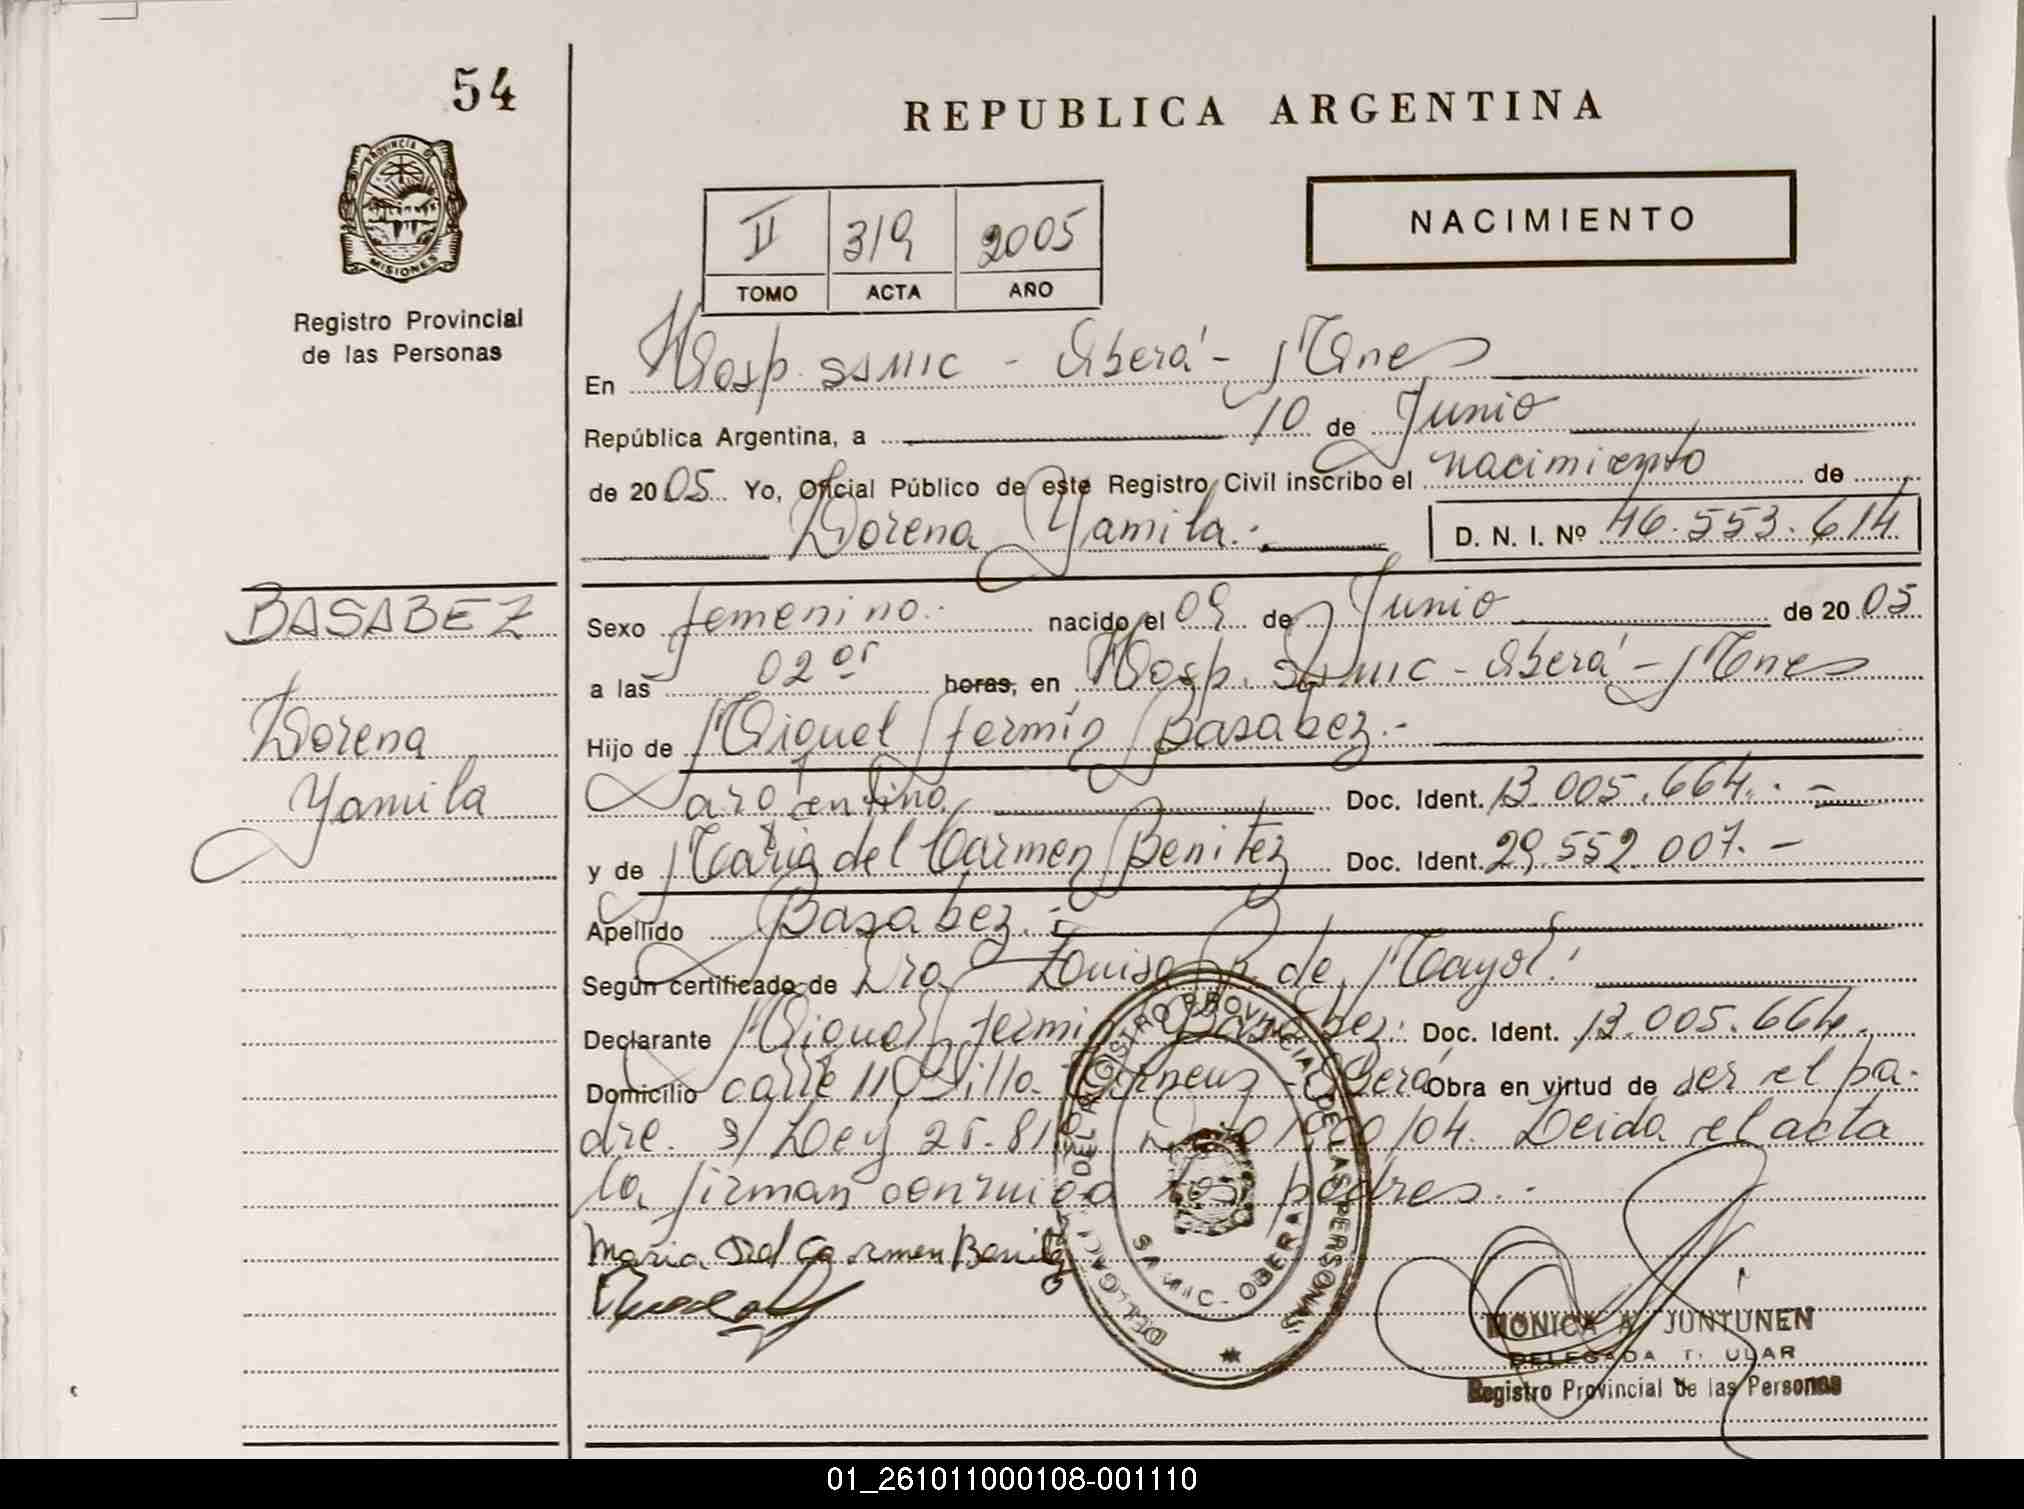 54
REPUBLICA ARGENTINA
PROVINCIA D
MISIONES
Registro Provincial
de las Personas
II 319 2005
TOMO ACTA AÑO
NACIMIENTO
En Hosp. SAMIC - Oberá - Mnes
República Argentina, a 10 de Junio
de 2005 Yo, Oficial Público de este Registro Civil inscribo el nacimiento de
Lorena Yamila.- D. N. I. Nº 46.553.614
BASABEZ
Lorena
Yamila
Sexo femenino.- nacido el 09 de Junio de 2005
a las 02 horas, en Hosp. SAMIC - Oberá - Mnes
Hijo de Miguel Fermín Basabez.-
argentino Doc. Ident. 13.005.664.-
y de María del Carmen Benitez Doc. Ident. 29.552.007.-
Apellido Basabez.-
Según certificado de Dra Luisa de Mayol.
Declarante Miguel Fermin Basabez. Doc. Ident. 13.005.664.
Domicilio calle 110 Villa Oberá Obra en virtud de ser el pa-
dre. s/ Ley 25.81 /04. Leida el acta
la firman conmigo los padres.-
Maria del Carmen Benitez
DELEGACION DEL REGISTRO PROVINCIAL DE LAS PERSONAS
SAMIC - OBERA
MONICA A. JUNTUNEN
DELEGADA TITULAR
Registro Provincial de las Personas
01_261011000108-001110